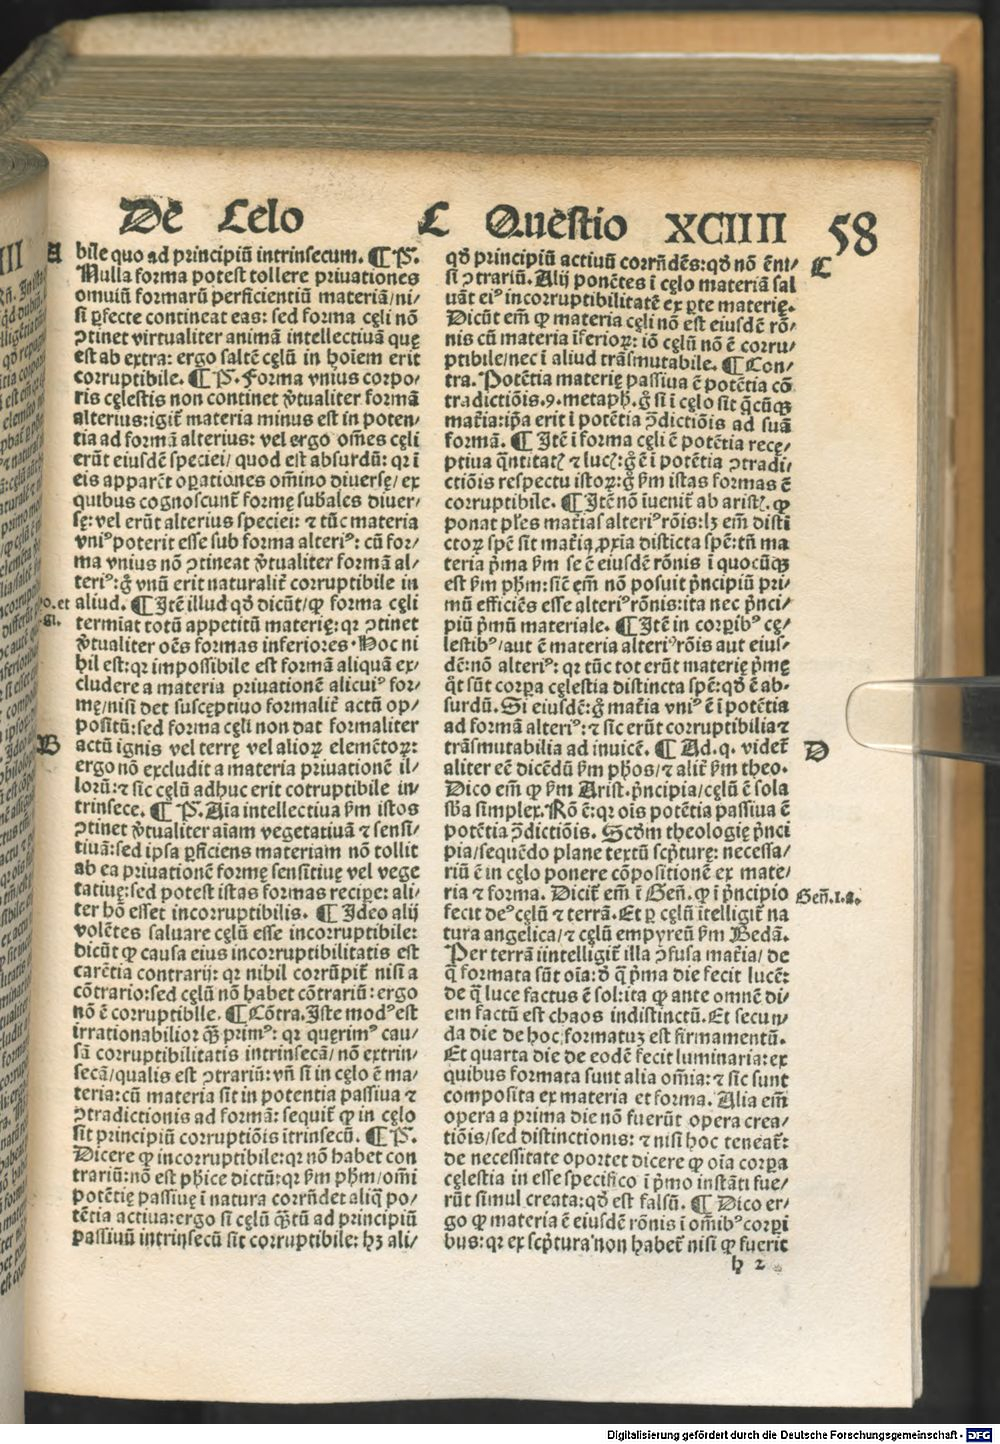 De Celo C Questio XCIIII 58
A
bile quo ad principiū intrinsecum. ¶ P̄.
Nulla forma potest tollere priuationes
omuiū formarū perficientiū materiā/ni/
si ꝑfecte contineat eas: sed forma cęli nō
ꝯtinet virtualiter animā intellectiuā quę
est ab extra: ergo saltē cęlū in hoīem erit
corruptibile. ¶ P̄. Forma vnius corpo/
ris cęlestis non continet v̓tualiter formā
alterius: igit̄ materia minus est in poten/
tia ad formā alterius: vel ergo om̄es cęli
erūt eiusdē speciei/ quod est absurdū: qꝛ ī
eis apparēt oꝑationes om̄ino diuersę/ ex
quibus cognoscunt̄ formę subales diuer/
sę: vel erūt alterius speciei: ⁊ tūc materia
vniꝰ poterit esse sub forma alteriꝰ: cū for/
ma vnius nō ꝯtineat v̓tualiter formā al/
teriꝰ: g̊ vnū erit naturalit̄ corruptibile in
aliud. ¶ Itē illud qd̄ dicūt/ ꝙ forma cęli
termiat totū appetitū materię: qꝛ ꝯtinet
v̓tualiter oēs formas inferiores. Hoc ni
hil est: qꝛ impossibile est formā aliquā ex/
cludere a materia priuationē alicuiꝰ for/
mę/nisi det susceptiuo formalit̄ actū op/
positū: sed forma cęli non dat formaliter
B
actū ignis vel terrę vel alioꝝ elemētoꝝ:
ergo nō excludit a materia priuationē il/
lorū: ⁊ sic cęlū adhuc erit cotruptibile in/
trinsece. ¶ P̄. Aīa intellectiua ẜm istos
ꝯtinet v̓tualiter aīam vegetatiuā ⁊ sensi/
tiuā: sed ipsa ꝑficiens materiam nō tollit
ab ea priuationē formę sensitiuę vel vege
tatiuę: sed potest istas formas recipe: ali/
ter hō esset incorruptibilis. ¶ Ideo alij
volētes saluare cęlū esse incorruptibile:
dicūt ꝙ causa eius incorruptibilitatis est
carētia contrarij: qꝛ nihil corrūpit̄ nisi a
cōtrario: sed cęlū nō habet cōtrariū: ergo
nō ē corruptiblle. ¶ Cōtra. Iste modꝰ est
irrationabilior qꝫ̄ primꝰ: qꝛ querimꝰ cau/
sā corruptibilitatis intrinsecā/ nō extrin/
secā/qualis est ꝯtrariū: vn̄ si in cęlo ē ma/
teria: cū materia sit in potentia passiua ⁊
ꝯtradictionis ad formā: sequit̄ ꝙ in cęlo
sit principiū corruptiōis ītrinsecū. ¶ P̄.
Dicere ꝙ incorruptibile: qꝛ nō habet con
trariū: nō est phīce dictū: qꝛ ẜm phm̄/ om̄i
potētię passiuę ī natura corrn̄det aliq̄ po/
tētia actiua: ergo si cęlū qꝫ̄tū ad principiū
passiuū intrinsecū sit corruptibile: hꝫ ali/
qd̄ principiū actiuū corrn̄dēs: qd̄ nō ēni/
C
si ꝯtrariū. Alij ponētes ī cęlo materiā sal
uāt eiꝰ incorruptibilitatē ex ꝑte materię.
Dicūt em̄ ꝙ materia cęli nō est eiusdē rō/
nis cū materia īferioꝝ: iō cęlū nō ē corru/
ptibile/nec ī aliud trāsmutabile. ¶ Con/
tra. Potētia materię passiua ē potētia cō
tradictiōis.9. metaph̄. g̊ si ī cęlo sit q̄cūqꝫ
mat̄ia: ip̄a erit ī potētia ꝯdictiōis ad suā
formā. ¶ Itē ī forma cęli ē potētia recę/
ptiua q̄ntitatꝭ ⁊ lucꝭ: g̊ ē ī potētia ꝯtradi/
ctiōis respectu istoꝝ: g̊ ẜm istas formas ē
corruptibile. ¶ Itē nō īuenit̄ ab aristꝭ. ꝙ
ponat pl̄es mat̄ias alteriꝰ rōis: lꝫ em̄ disti
ctoꝝ spē sit mat̄ia ꝓxīa disticta spē: tn̄ ma
teria p̄ma ẜm se ē eiusdē rōnis ī quocūqꝫ
est ẜm phm̄: sic em̄ nō posuit p̄ncipiū pri/
mū efficiēs esse alteriꝰ rōnis: ita nec p̄nci/
piū p̄mū materiale. ¶ Itē in corꝑibꝰ cę/
lestibꝰ/aut ē materia alteriꝰ rōis aut eius/
dē: nō alteriꝰ: qꝛ tūc tot erūt materię p̄mę
q̄t sūt corꝑa cęlestia distincta spē: qd̄ ē ab/
surdū. Si eiusdē: g̊ mat̄ia vniꝰ ē ī potētia
ad formā alteriꝰ: ⁊ sic erūt corruptibilia ⁊
trāsmutabilia ad inuicē. ¶ Ad. q. videt̄
D
aliter eē dicēdū ẜm phos/ ⁊ alit̄ ẜm theo.
Dico em̄ ꝙ ẜm Arist. p̄ncipia/cęlū ē sola
sb̄a simplex. Rō ē: qꝛ oīs potētia passiua ē
potētia ꝯdictiōis. Scd̄m theologię p̄nci
pia/sequēdo plane textū scp̄turę: necessa/
riū ē in cęlo ponere cōpositionē ex mate/
ria ⁊ forma. Dicit̄ em̄ ī Gen̄. ꝙ ī p̄ncipio
Gen̄.1.a.
fecit deꝰ cęlū ⁊ terrā. Et ꝑ cęlū ītelligit̄ na
tura angelica/ ⁊ cęlū empyreū ẜm Bedā.
Per terrā iintelligit̄ illa ꝯfusa mat̄ia/ de
q̄ formata sūt oīa: ꝺ q̄ p̄ma die fecit lucē:
de q̄ luce factus ē sol: ita ꝙ ante omnē di/
em factū est chaos indistinctū. Et secun/
da die de hoc formatuꝫ est firmamentū.
Et quarta die de eodē fecit luminaria: ex
quibus formata sunt alia om̄ia: ⁊ sic sunt
composita ex materia et forma. Alia em̄
opera a prima die nō fuerūt opera crea/
tiōis/sed distinctionis: ⁊ nisi hoc teneat̄:
de necessitate oportet dicere ꝙ oīa corꝑa
cęlestia in esse specifico ī p̄mo instāti fue/
rūt simul creata: qd̄ est falsū. ¶ Dico er/
go ꝙ materia ē eiusdē rōnis ī om̄ibꝰ corꝑi
bus: qꝛ ex scp̄tura non habet̄ nisi ꝙ fuerit
h 2
Digitalisierung gefördert durch die Deutsche Forschungsgemeinschaft - DFG